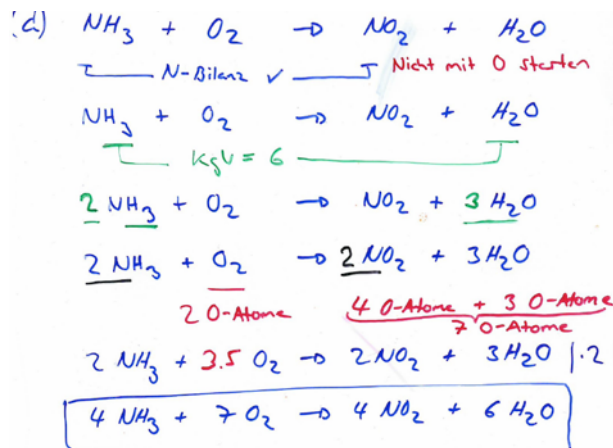 (d) NH₃ + O₂ → NO₂ + H₂O
N-Bilanz ✓ Nicht mit O starten
NH₃ + O₂ → NO₂ + H₂O
KgV = 6
2 NH₃ + O₂ → NO₂ + 3 H₂O
2 NH₃ + O₂ → 2 NO₂ + 3 H₂O
2 O-Atome 4 O-Atome + 3 O-Atome
7 O-Atome
2 NH₃ + 3.5 O₂ → 2 NO₂ + 3 H₂O |·2
4 NH₃ + 7 O₂ → 4 NO₂ + 6 H₂O